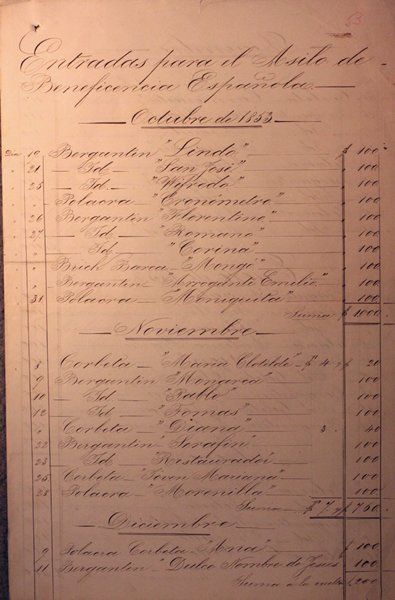 53
Entradas para el Asilo de
Beneficencia Española
Octubre de 1853
Dia 10 Bergantin "Lindo" $ 100
" 21 — Id — "San José" " 100
" 25 — Id — "Wifredo" " 100
" " Polacra "Cronómetro" " 100
" 26 Bergantin "Florentino" " 100
" 27 — Id — "Romano" " 100
" " — Id — "Corina" " 100
" " Brick Barca "Mongó" " 100
" " Bergantin "Arrogante Emilio" " 100
" 31 Polacra "Moniquita" " 100
Suma $ 1000
Noviembre
8 Corbeta "Maria Clotilde" $ 4 " 20
9 Bergantin "Monarca" 100
10 — Id — "Pablo" 100
12 — Id — "Tomas" 100
" Corbeta "Diana" 3 40
22 Bergantin "Serafin" 100
23 — Id — "Restaurador" 100
25 Corbeta "Joven Mariana" 100
28 Polacra "Morenilla" 100
Suma $ 7 $ 760
Diciembre
9 Polacra Corbeta "Ana" $ 100
11 Bergantin "Dulce Nombre de Jesus" 100
Suma a la vuelta $ 200